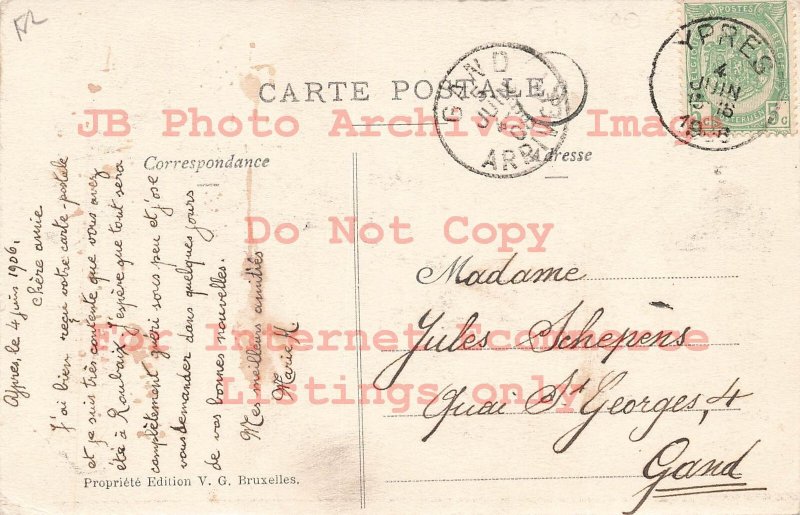 CARTE POSTALE
Correspondance
Adresse
Ypres, le 4 juin 1906.
Chère amie
J'ai bien reçu votre carte-postale
et je suis très contente que vous avez
été à Roubaix. J'espère que tout sera
complètement guéri sous peu et j'ose
vous demander dans quelques jours
de vos bonnes nouvelles.
Mes meilleurs amitiés
Marie H
Madame
Jules Schepens
Quai St Georges, 4
Gand
Propriété Edition V. G. Bruxelles.
GAND
JUIN
ARRIVÉE
YPRES
4
JUIN
POSTES
5c
JB Photo Archives Image
Do Not Copy
For Internet Ecommerce
Listings only